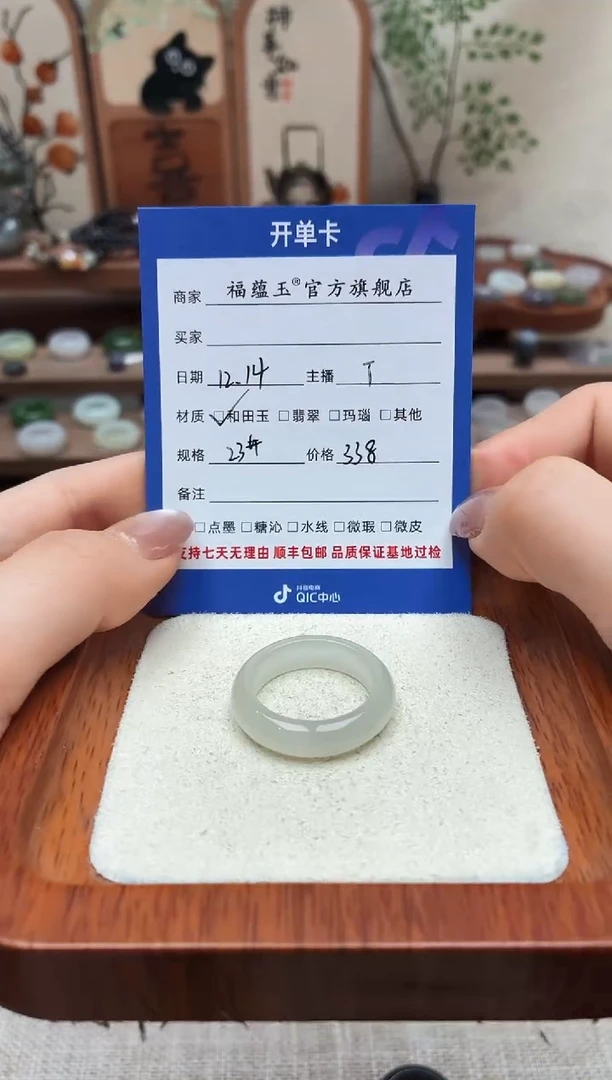 开单卡
商家 福蕴玉®官方旗舰店
买家
日期 12.14 主播 T
材质 ☑和田玉 □翡翠 □玛瑙 □其他
规格 23# 价格 338
备注
□点墨 □糖沁 □水线 □微瑕 □微皮
支持七天无理由 顺丰包邮 品质保证基地过检
抖音电商
QIC中心